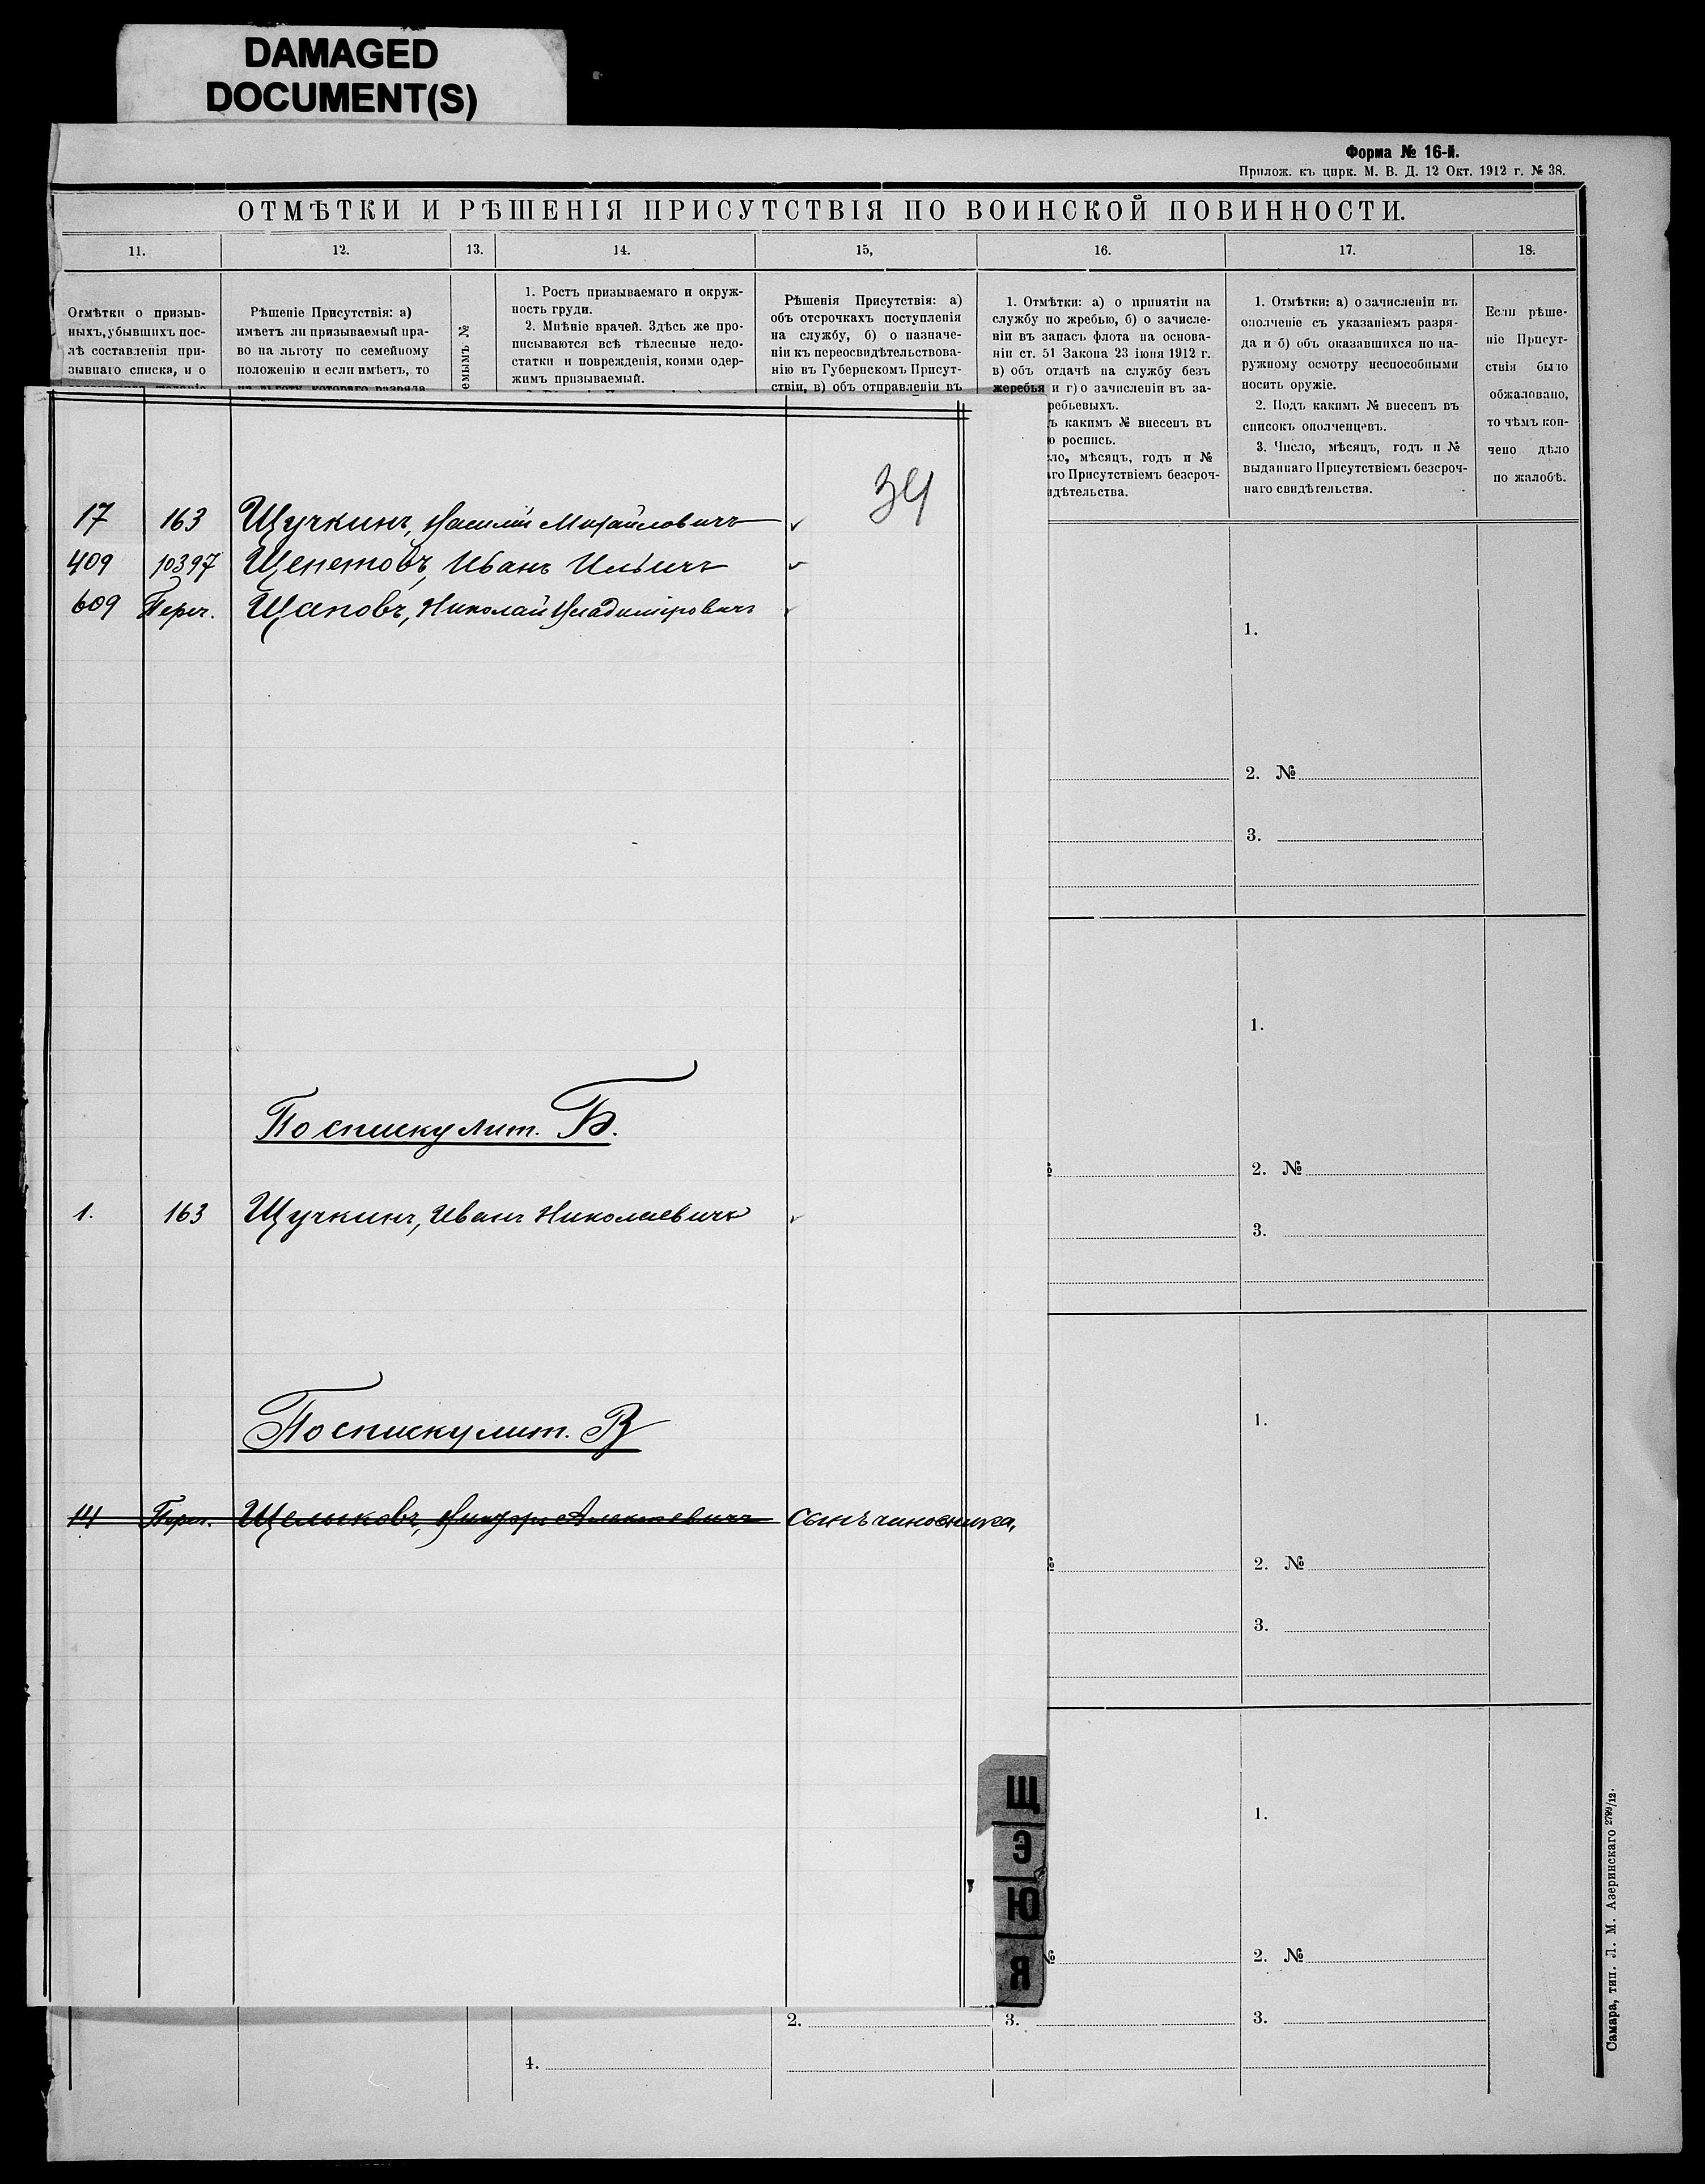 DAMAGED
DOCUMENT(S)
Форма № 16-й.
Прилож. къ цирк. М. В. Д. 12 Окт. 1912 г. № 38.
ОТМѢТКИ И РѢШЕНІЯ ПРИСУТСТВІЯ ПО ВОИНСКОЙ ПОВИННОСТИ.
11. 12. 13. 14. 15, 16. 17. 18.
Отмѣтки о призыв-
ныхъ, убывшихъ пос-
лѣ составленія при-
зывнаго списка, и о
Рѣшеніе Присутствія: а)
имѣетъ ли призываемый пра-
во на льготу по семейному
положенію и если имѣетъ, то
на льготу котораго разряда
емымъ №
1. Ростъ призываемаго и окруж-
ность груди.
2. Мнѣніе врачей. Здѣсь же про-
писываются всѣ тѣлесные недо-
статки и поврежденія, коими одер-
жимъ призываемый.
Рѣшенія Присутствія: а)
объ отсрочкахъ поступленія
на службу, б) о назначе-
ніи къ переосвидѣтельствова-
нію въ Губернскомъ Присут-
ствіи, в) объ отправленіи въ
1. Отмѣтки: а) о принятіи на
службу по жребью, б) о зачисле-
ніи въ запасъ флота на основа-
ніи ст. 51 Закона 23 іюня 1912 г.
в) объ отдачѣ на службу безъ
жеребья и г) о зачисленіи въ за-
ребьевыхъ.
ъ какимъ № внесенъ въ
ю роспись.
сло, мѣсяцъ, годъ и №
аго Присутствіемъ безсроч-
идѣтельства.
1. Отмѣтки: а) о зачисленіи въ
ополченіе съ указаніемъ разря-
да и б) объ оказавшихся по на-
ружному осмотру неспособными
носить оружіе.
2. Подъ какимъ № внесенъ въ
списокъ ополченцевъ.
3. Число, мѣсяцъ, годъ и №
выданнаго Присутствіемъ безсроч-
наго свидѣтельства.
Если рѣше-
ніе Присут-
ствія было
обжаловано,
то чѣмъ кон-
чено дѣло
по жалобѣ.
34
17 163 Щучкинъ, Василій Михайловичъ
409 10397 Щепетовъ, Иванъ Ильичъ
609 Переч. Щаповъ, Николай Владиміровичъ
1.
2. №
3.
По списку лит. Б.
1.
2. №
1. 163 Щучкинъ, Иванъ Николаевичъ
3.
По списку лит. В
1.
14 Переч. Щелыковъ, Викторъ Алексѣевичъ Сынъ чиновника,
2. №
3.
Щ
Э
Ю
Я
1.
2. №
2. 3. 3.
4.
Самара, тип. Л. М. Азеринскаго 2799/12.